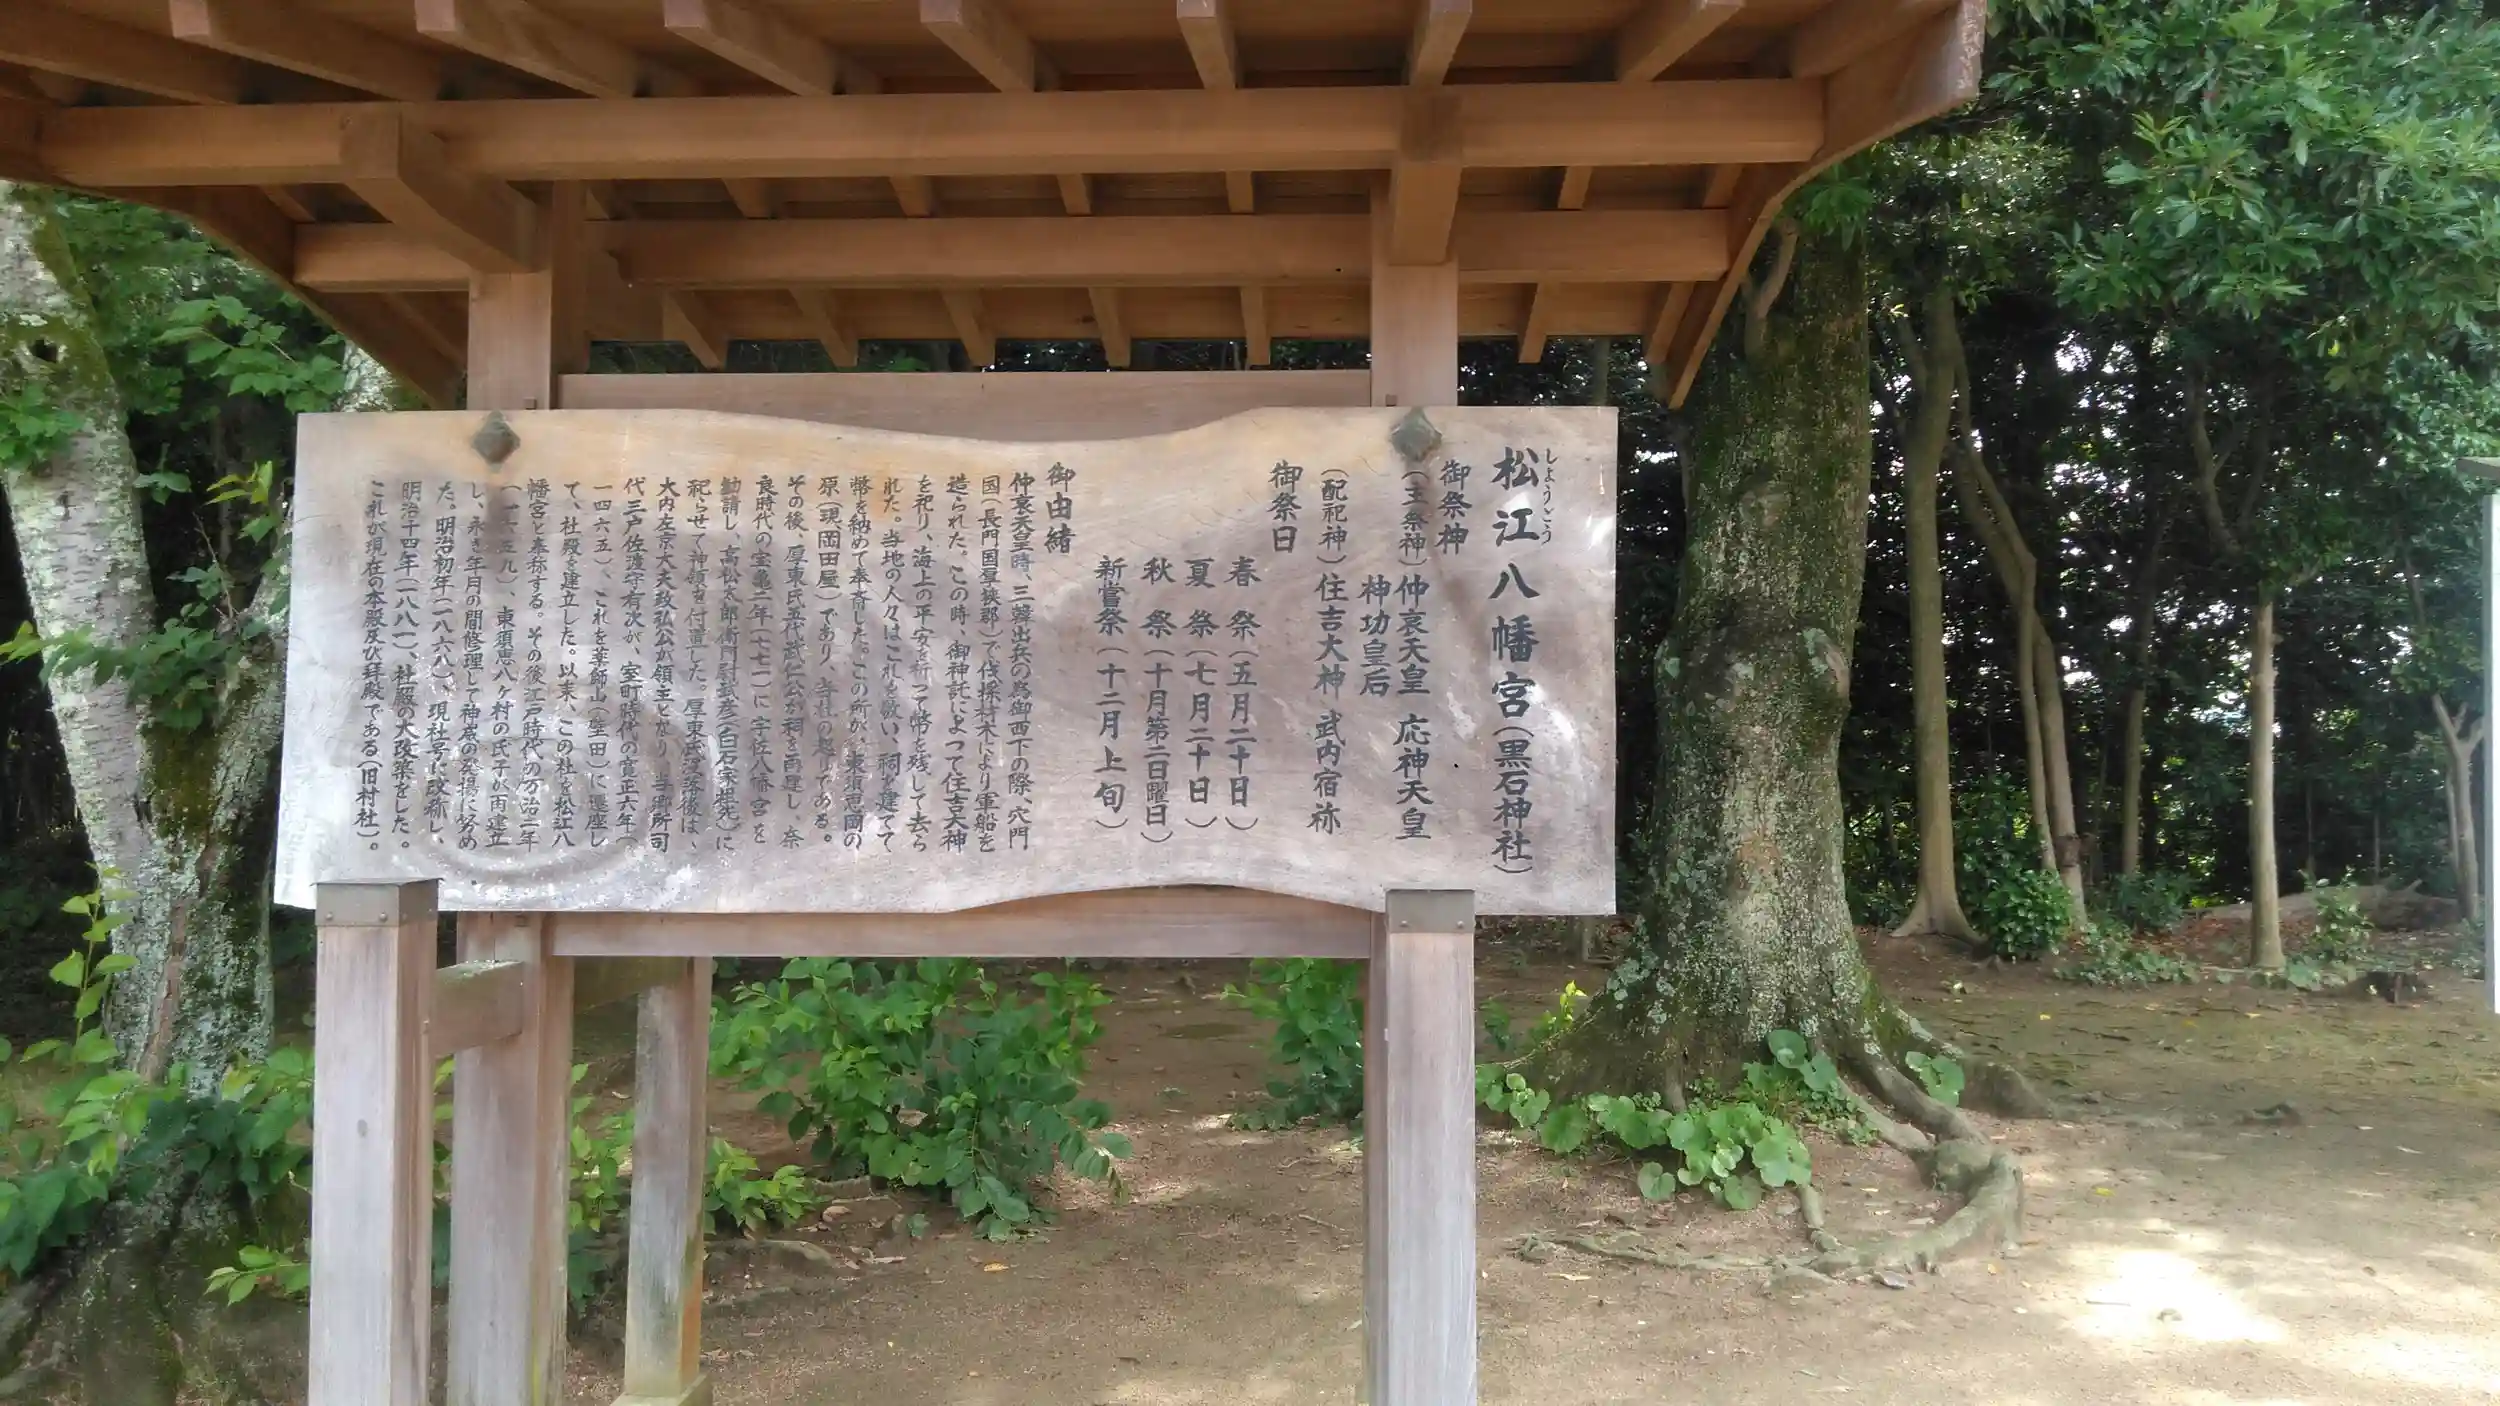 松江八幡宮（黒石神社）
しようごう
御祭神
（主祭神）仲哀天皇 応神天皇
神功皇后
（配祀神）住吉大神 武内宿祢
御祭日
春 祭（五月二十日）
夏 祭（七月二十日）
秋 祭（十月第二日曜日）
新嘗祭（十二月上旬）
御由緒
仲哀天皇時、三韓出兵の為御西下の際、穴門
国（長門国厚狭郡）で伐採材木により軍船を
造られた。この時、御神託によつて住吉大神
を祀り、海上の平安を祈つて幣を残して去ら
れた。当地の人々はこれを敬い、祠を建てて
幣を納めて奉斎した。この所が、東須恵岡の
原（現岡田屋）であり、当社の起りである。
その後、厚東氏五代武仁公が祠を再建し、奈
良時代の宝亀二年（七七一）に宇佐八幡宮を
勧請し、高松太郎衛門尉武彦（白石家祖先）に
祀らせて神領を付置した。厚東氏没落後は、
大内左京大夫政弘公が領主となり、当郷所司
代三戸佐渡守有次が、室町時代の寛正六年（
一四六五）、これを薬師山（塩田）に遷座し
て、社殿を建立した。以来、この社を松江八
幡宮と奉称する。その後江戸時代の万治二年
（一六五九）、東須恵八ヶ村の氏子が再建立
し、永き年月の間修理して神威の発揚に努め
た。明治初年（一八六八）、現社号に改称し、
明治十四年（一八八一）、社殿の大改築をした。
これが現在の本殿及び拝殿である（旧村社）。